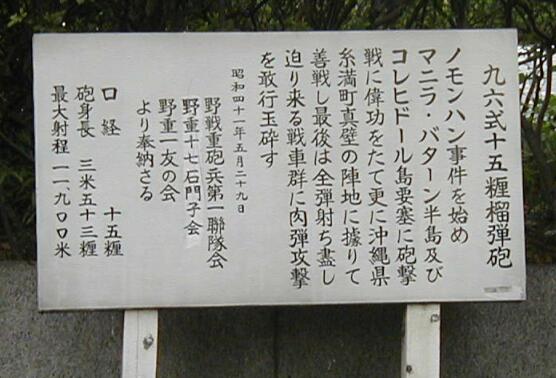 九六式十五糎榴弾砲
ノモンハン事件を始め
マニラ・バターン半島及び
コレヒドール島要塞に砲撃
戦に偉功をたて更に沖縄県
糸満町真壁の陣地に據りて
善戦し最後は全弾射ち盡し
迫り来る戦車群に肉弾攻撃
を敢行玉砕す
昭和四十一年五月二十九日
野戦重砲兵第一聯隊会
野重十七石門子会
野重一友の会
より奉納さる
口経 十五糎
砲身長 三米五十三糎
最大射程 一一、九〇〇米